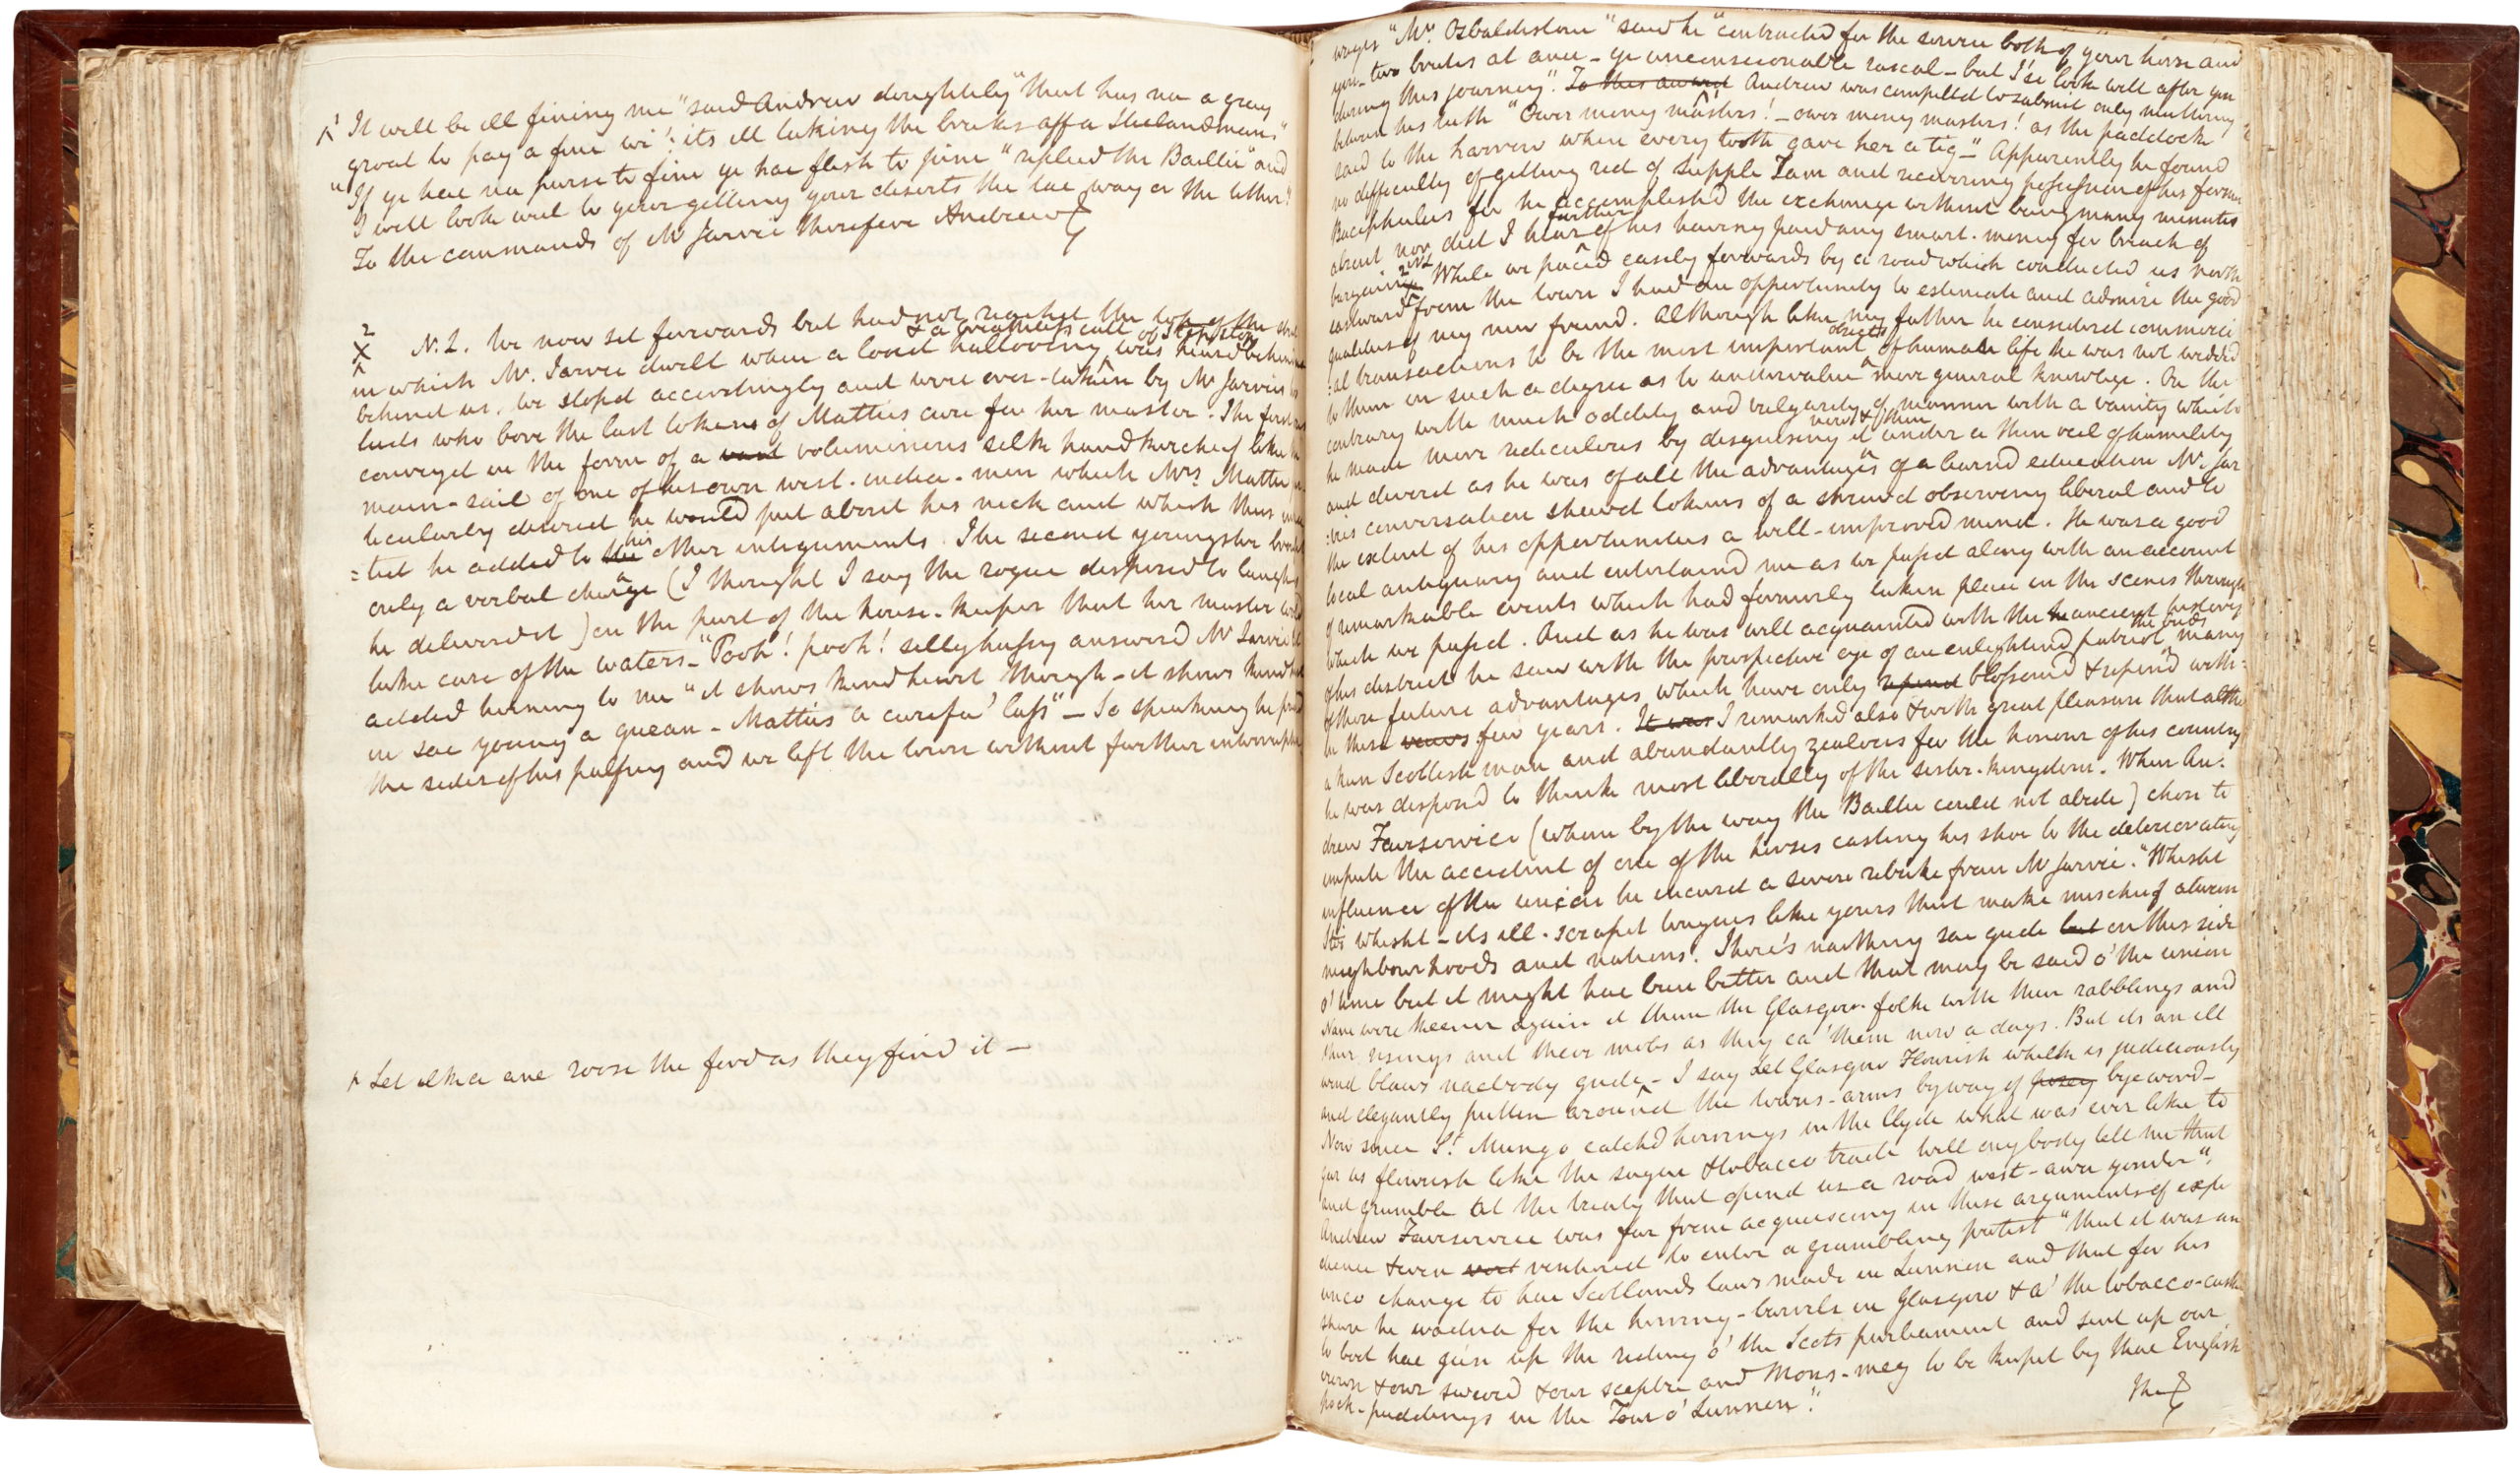 1 "It will be ill fining me" said Andrew doughtily "that has na a gray
groat to pay a fine wi'; its ill taking the breeks aff a Hielandman."
"If ye hae na purse to fine ye hae flesh to pine" replied the Baillie "and
I will look weel to your getting your deserts the tae way or the tither."
To the commands of Mr Jarvie therefore Andrew
2 N.L. We now set forwards but had not reached the top of the
& a breathless call of Stop Stop
in which Mr. Jarvie dwelt when a loud hallooing was heard behind
behind us. We stopd accordingly and were over-taken by Mr Jarvies
lads who bore the last tokens of Matties care for her master. The first
conveyed in the form of a voluminous silk handkerchief like the
main-sail of one of his own west-india-men which Mrs. Mattie
ticularly desired he would put about his neck and which thus
=ted he added to his other integuments. The second youngster
only a verbal charge (I thought I saw the rogue disposed to laugh
he deliverd it) on the part of the house-keeper that her master
take care of the waters_ "Pooh! pooh! silly hussy answered Mr Jarvie
added turning to me "it shows kind heart though - it shows kind
in sae young a quean - Mattie's a carefu' lass" — So speaking he
the sides of his palfrey and we left the town without further
+ Let ilka ane roose the ford as they find it —
wages "Mr. Osbaldistone" said he "contracted for the service both of your horse and
you - twa brutes at ance - ye unconscionable rascal - but I'se look weel after you
during this journey". To this award Andrew was compelled to submit only muttering
between his teeth "Ower mony masters! - ower mony masters! as the paddock
said to the harrow when every tooth gave her a tig_" Apparently he found
no difficulty of getting rid of Supple Tam and recovering possession of his former
Bucephalus for he accomplishd the exchange without being many minutes
further
absent nor did I hear of his having paid any smart-money for breach of
2 NL
bargain. While we paced easily forwards by a road which conducted us north
eastward from the town I had an opportunity to estimate and admire the good
qualities of my new friend. Although like my father he considered commerci
objects
:al transactions to be the most important of human life he was not wedded
to them in such a degree as to undervalue more general knowlege. On the
contrary with much oddity and vulgarity of manner with a vanity which
now & then
he made more ridiculous by disguising it under a thin veil of humility
and devoid as he was of all the advantages of a learnd education Mr. Jar
:vies conversation shewd tokens of a shrewd observing liberal and to
the extent of his opportunities a well-improved mind. He was a good
local antiquary and entertaind me as we passd along with an account
of remarkable events which had formerly taken place in the scenes through
which we passd. And as he was well acquainted with the ancient history
the buds
of his district he saw with the prospective eye of an enlightend patriot many
of those future advantages which have only blossomd & ripend with-
in these few years. It was I remarked also & with great pleasure that altho
a keen Scottishman and abundantly zealous for the honour of his country
he was disposed to think most liberally of the sister-kingdom. When An:
drew Fairservice (whom by the way the Baillie could not abide) chose to
impute the accident of one of the horses casting his shoe to the deteriorating
influence of the union he incurd a severe rebuke from Mr Jarvie. "Whisht
Sir whisht - its ill-scrapit tongues like yours that make mischief atween
neighbourhoods and nations. There's naething sae gude but on this side
o' time but it might hae been better and that may be said o' the union
Nane were keener again it than the Glasgow folk with their rabblings and
their risings and their mobs as they ca' them now a days. But its an ill
wind blaws naebody gude - I say Let Glasgow Flourish whilk is judiciously
and elegantly putten around the towns-arms by way of bye word_
Now since St. Mungo catchd herrings in the Clyde what was ever like to
gar us flourish like the sugar & tobacco trade will ony body tell me that
and grumble at the treaty that opend us a road west-awa yonder".
Andrew Fairservice was far from acquiescing in these arguments of expe
dience & even ventured to enter a grumbling protest "that it was an
unco change to hae Scotlands laws made in Lunnon and that for his
share he wadna for the herring-barrels in Glasgow & a' the tobacco-casks
to boot hae gien up the riding o' the Scots parliament and sent up our
crown & our sword & our sceptre and Mons-meg to be keepit by thae English
pock-puddings in the Tour o' Lunnon."
The